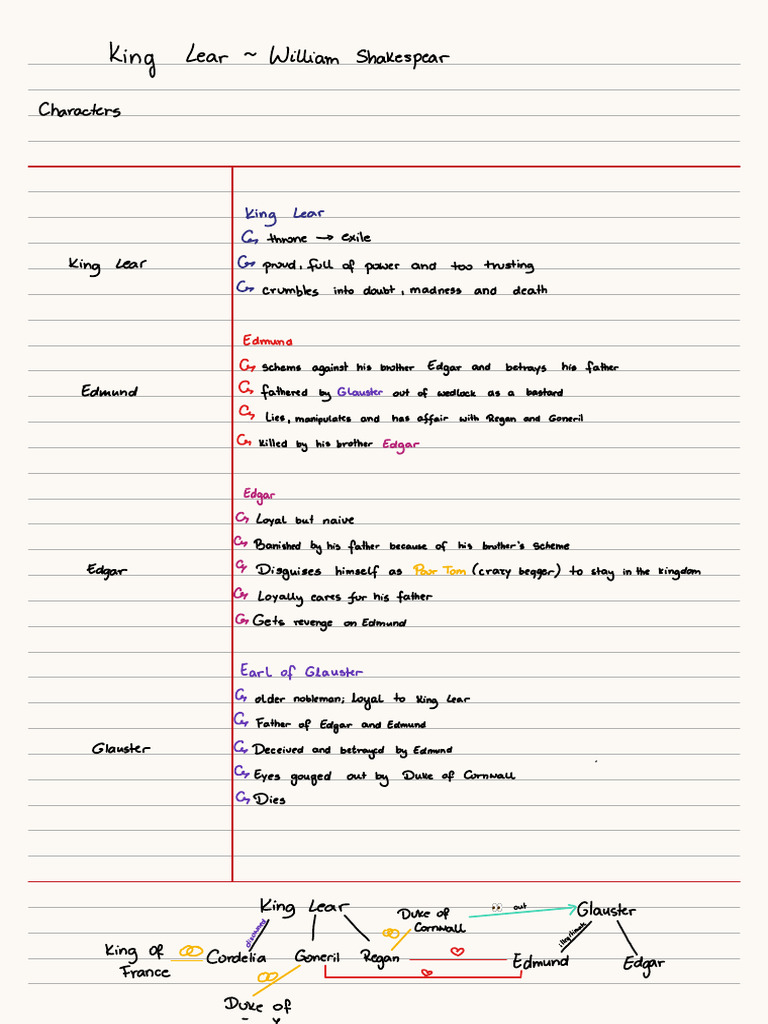 King Lear ~ William Shakespear
Characters
King Lear
King Lear
throne → exile
proud, full of power and too trusting
crumbles into doubt, madness and death
Edmund
Edmund
schems against his brother Edgar and betrays his father
fathered by Glauster out of wedlock as a bastard
Lies, manipulates and has affair with Regan and Goneril
killed by his brother Edgar
Edgar
Edgar
Loyal but naive
Banished by his father because of his brother's scheme
Disguises himself as Poor Tom (crazy begger) to stay in the kingdom
Loyally cares for his father
Gets revenge on Edmund
Glauster
Earl of Glauster
older nobleman; loyal to King Lear
Father of Edgar and Edmund
Deceived and betrayed by Edmund
Eyes gouged out by Duke of Cornwall
Dies
King Lear
Duke of
Cornwall
👀 out
Glauster
disowned
illegitimate
King of
France
Cordelia
Goneril
Regan
Edmund
Edgar
Duke of